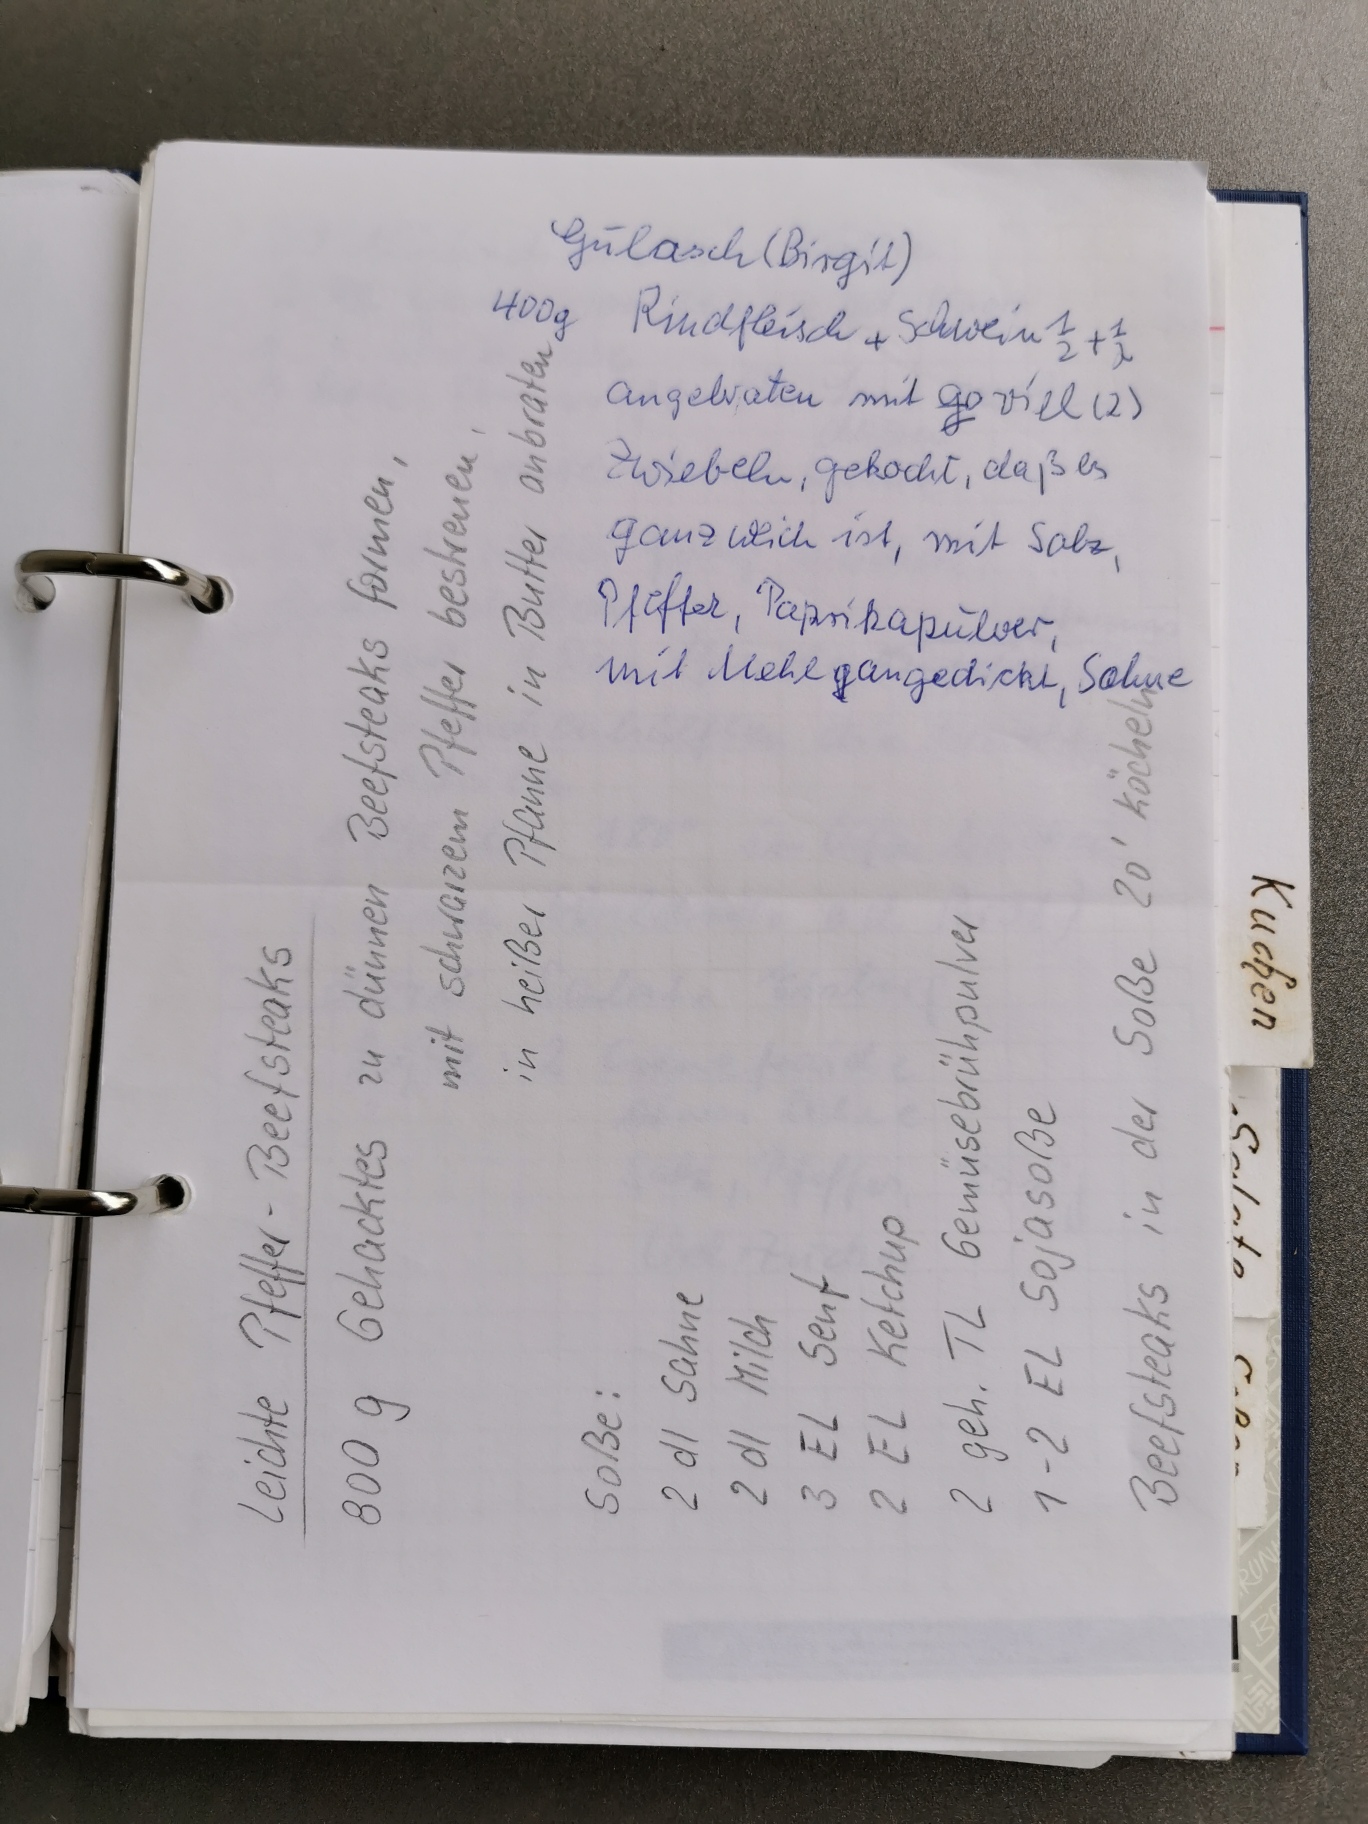 Gulasch (Birgit)
400g Rindfleisch + Schwein 1/2 + 1/2
angebraten mit so viel (2)
Zwiebeln, gekocht, daß es
ganz weich ist, mit Salz,
Pfeffer, Paprikapulver,
mit Mehl angedickt, Sahne
Leichte Pfeffer-Beefsteaks
800 g Gehacktes zu dünnen Beefsteaks formen,
mit schwarzem Pfeffer bestreuen,
in heißer Pfanne in Butter anbraten
Soße:
2 dl Sahne
2 dl Milch
3 EL Senf
2 EL Ketchup
2 geh. TL Gemüsebrühpulver
1-2 EL Sojasoße
Beefsteaks in der Soße 20' köcheln
Kuchen
Salate